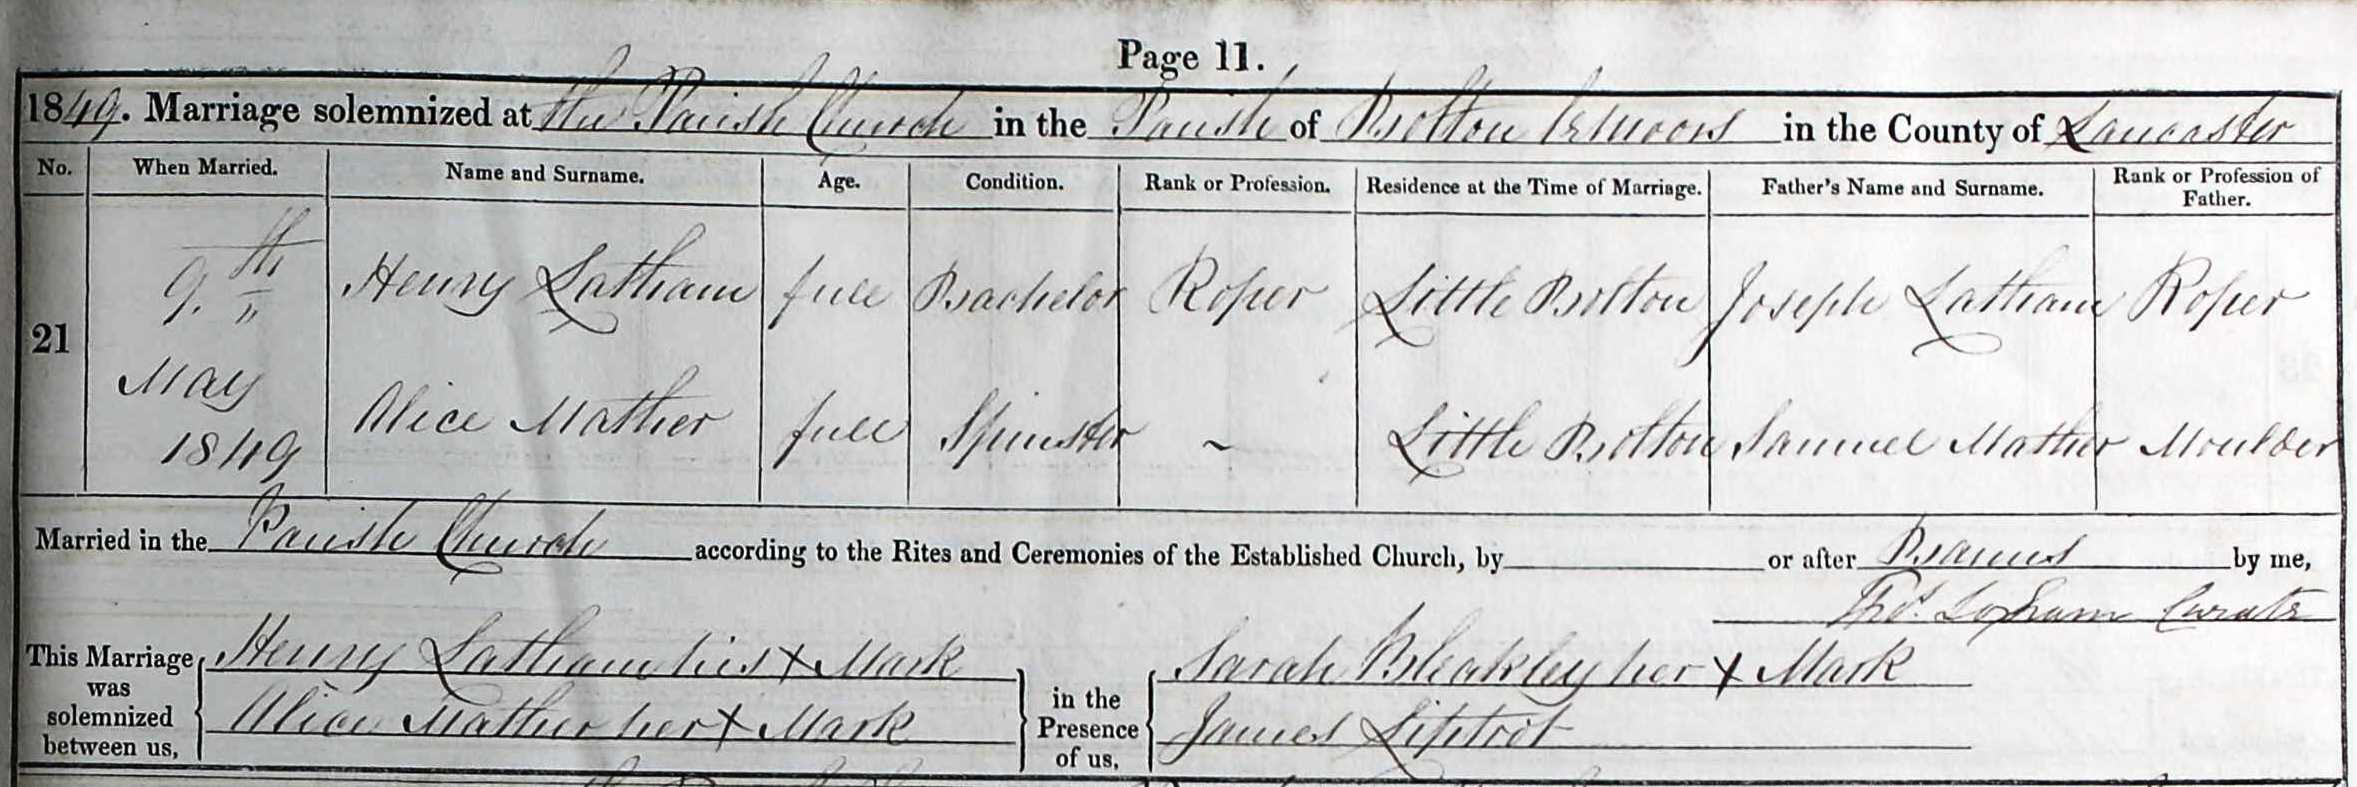 Page 11.
1849. Marriage solemnized at the Parish Church in the Parish of Bolton le moors in the County of Lancaster
No. When Married. Name and Surname. Age. Condition. Rank or Profession. Residence at the Time of Marriage. Father's Name and Surname. Rank or Profession of Father.
21 9.th May 1849
Henry Latham full Bachelor Roper Little Bolton Joseph Latham Roper
Alice Mather full Spinster ~ Little Bolton Samuel Mather Moulder
Married in the Parish Church according to the Rites and Ceremonies of the Established Church, by or after Banns by me,
Thos. Loxham Curate
This Marriage was solemnized between us,
Henry Latham his X Mark
Alice Mather her X Mark
in the Presence of us,
Sarah Bleakley her X Mark
James Liptrot